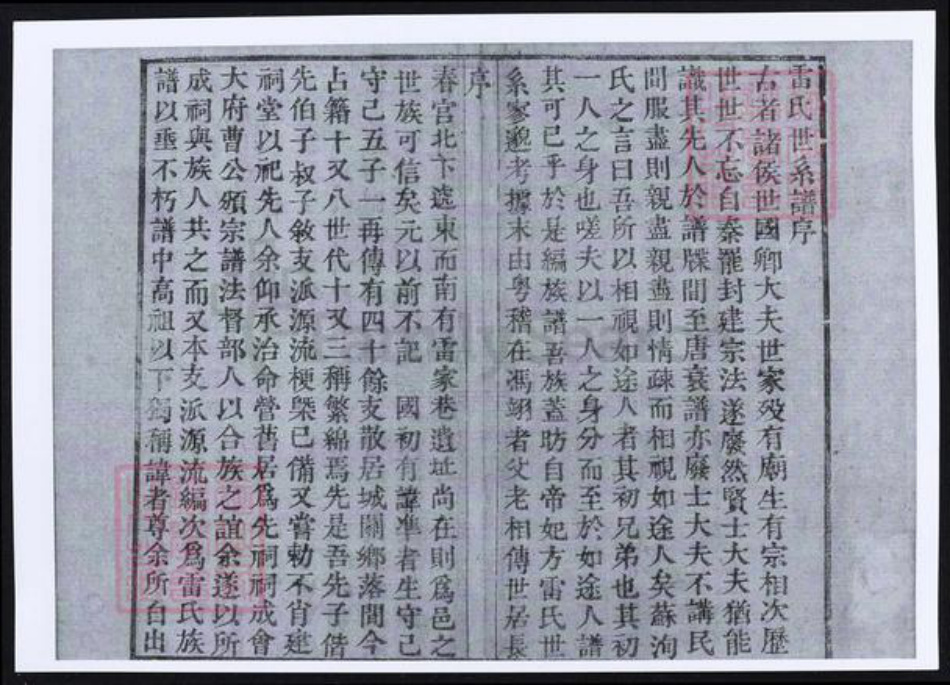 雷氏世系譜序
古者諸侯世國卿大夫世家歿有廟生有宗相次歷
世世不忘自秦罷封建宗法遂廢然賢士大夫猶能
識其先人於譜牒間至唐衰譜亦廢士大夫不講民
間服盡則親盡親盡則情疎而相視如途人矣蘇洵
氏之言曰吾所以相視如途人者其初兄弟也其初
一人之身也嗟夫以一人之身分而至於如途人譜
其可已乎於是編族譜吾族蓋昉自帝妃方雷氏世
系寥邈考據末由粵稽在馮翊者父老相傳世居長
序
春宮北下迤東而南有雷家巷遺址尚在則為邑之
世族可信矣元以前不記　國初有諱準者生守己
守己五子一再傳有四十餘支散居城關鄉落間今
占籍十又八世代十又三稱繁綿焉先是吾先子偕
先伯子叔子敘支派源流梗槩已備又嘗勅不肖建
祠堂以祀先人余仰承治命營舊居為先祠祠成會
大府曹公頒宗譜法督部人以合族之誼余遂以所
成祠與族人共之而又本支派源流編次為雷氏族
譜以垂不朽譜中高祖以下獨稱諱者尊余所自出